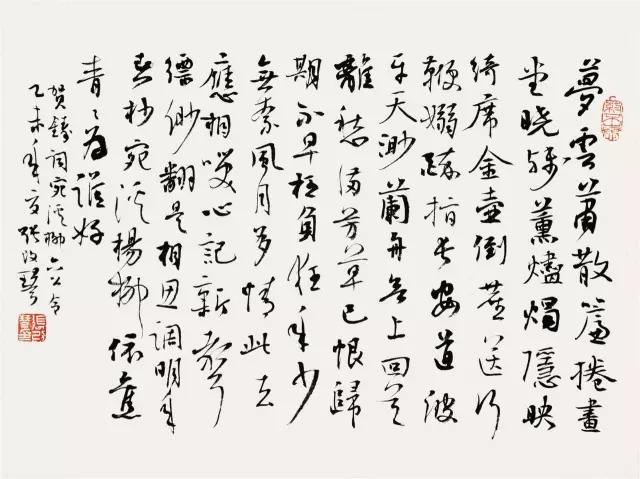 夢雲蕭散簾捲畫
堂曉殘薰燼燭隱映
綺席金壺倒塵送行
鞭嫋指長安道波
平天渺蘭舟欲上回首
離愁滿芳草已恨歸
期不早枉負狂年少
無奈風月多情此去
應相笑心記新聲
縹緲翻是相思調明年
春杪宛溪楊柳依舊
青々為誰好
賀鑄詞宛溪柳六么令
乙未年夏張改琴